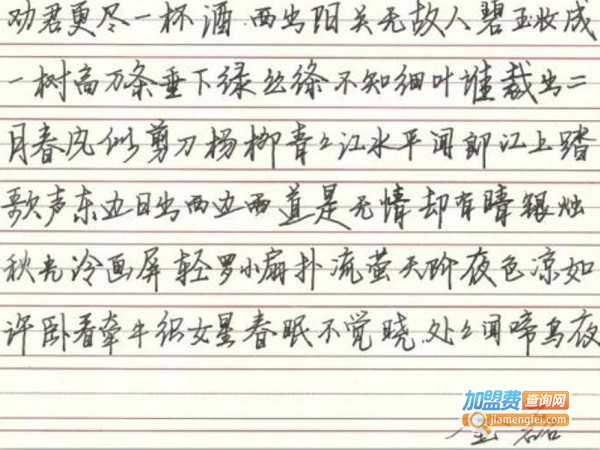 劝君更尽一杯酒.西出阳关无故人碧玉妆成
一树高万条垂下绿丝绦不知细叶谁裁出二
月春风似剪刀杨柳青々江水平闻郎江上踏
歌声东边日出西边雨道是无情却有晴银烛
秋光冷画屏轻罗小扇扑流萤天阶夜色凉如
许卧看牵牛织女星春眠不觉晓.处々闻啼鸟夜
加盟费查询网
jiamengfei.com